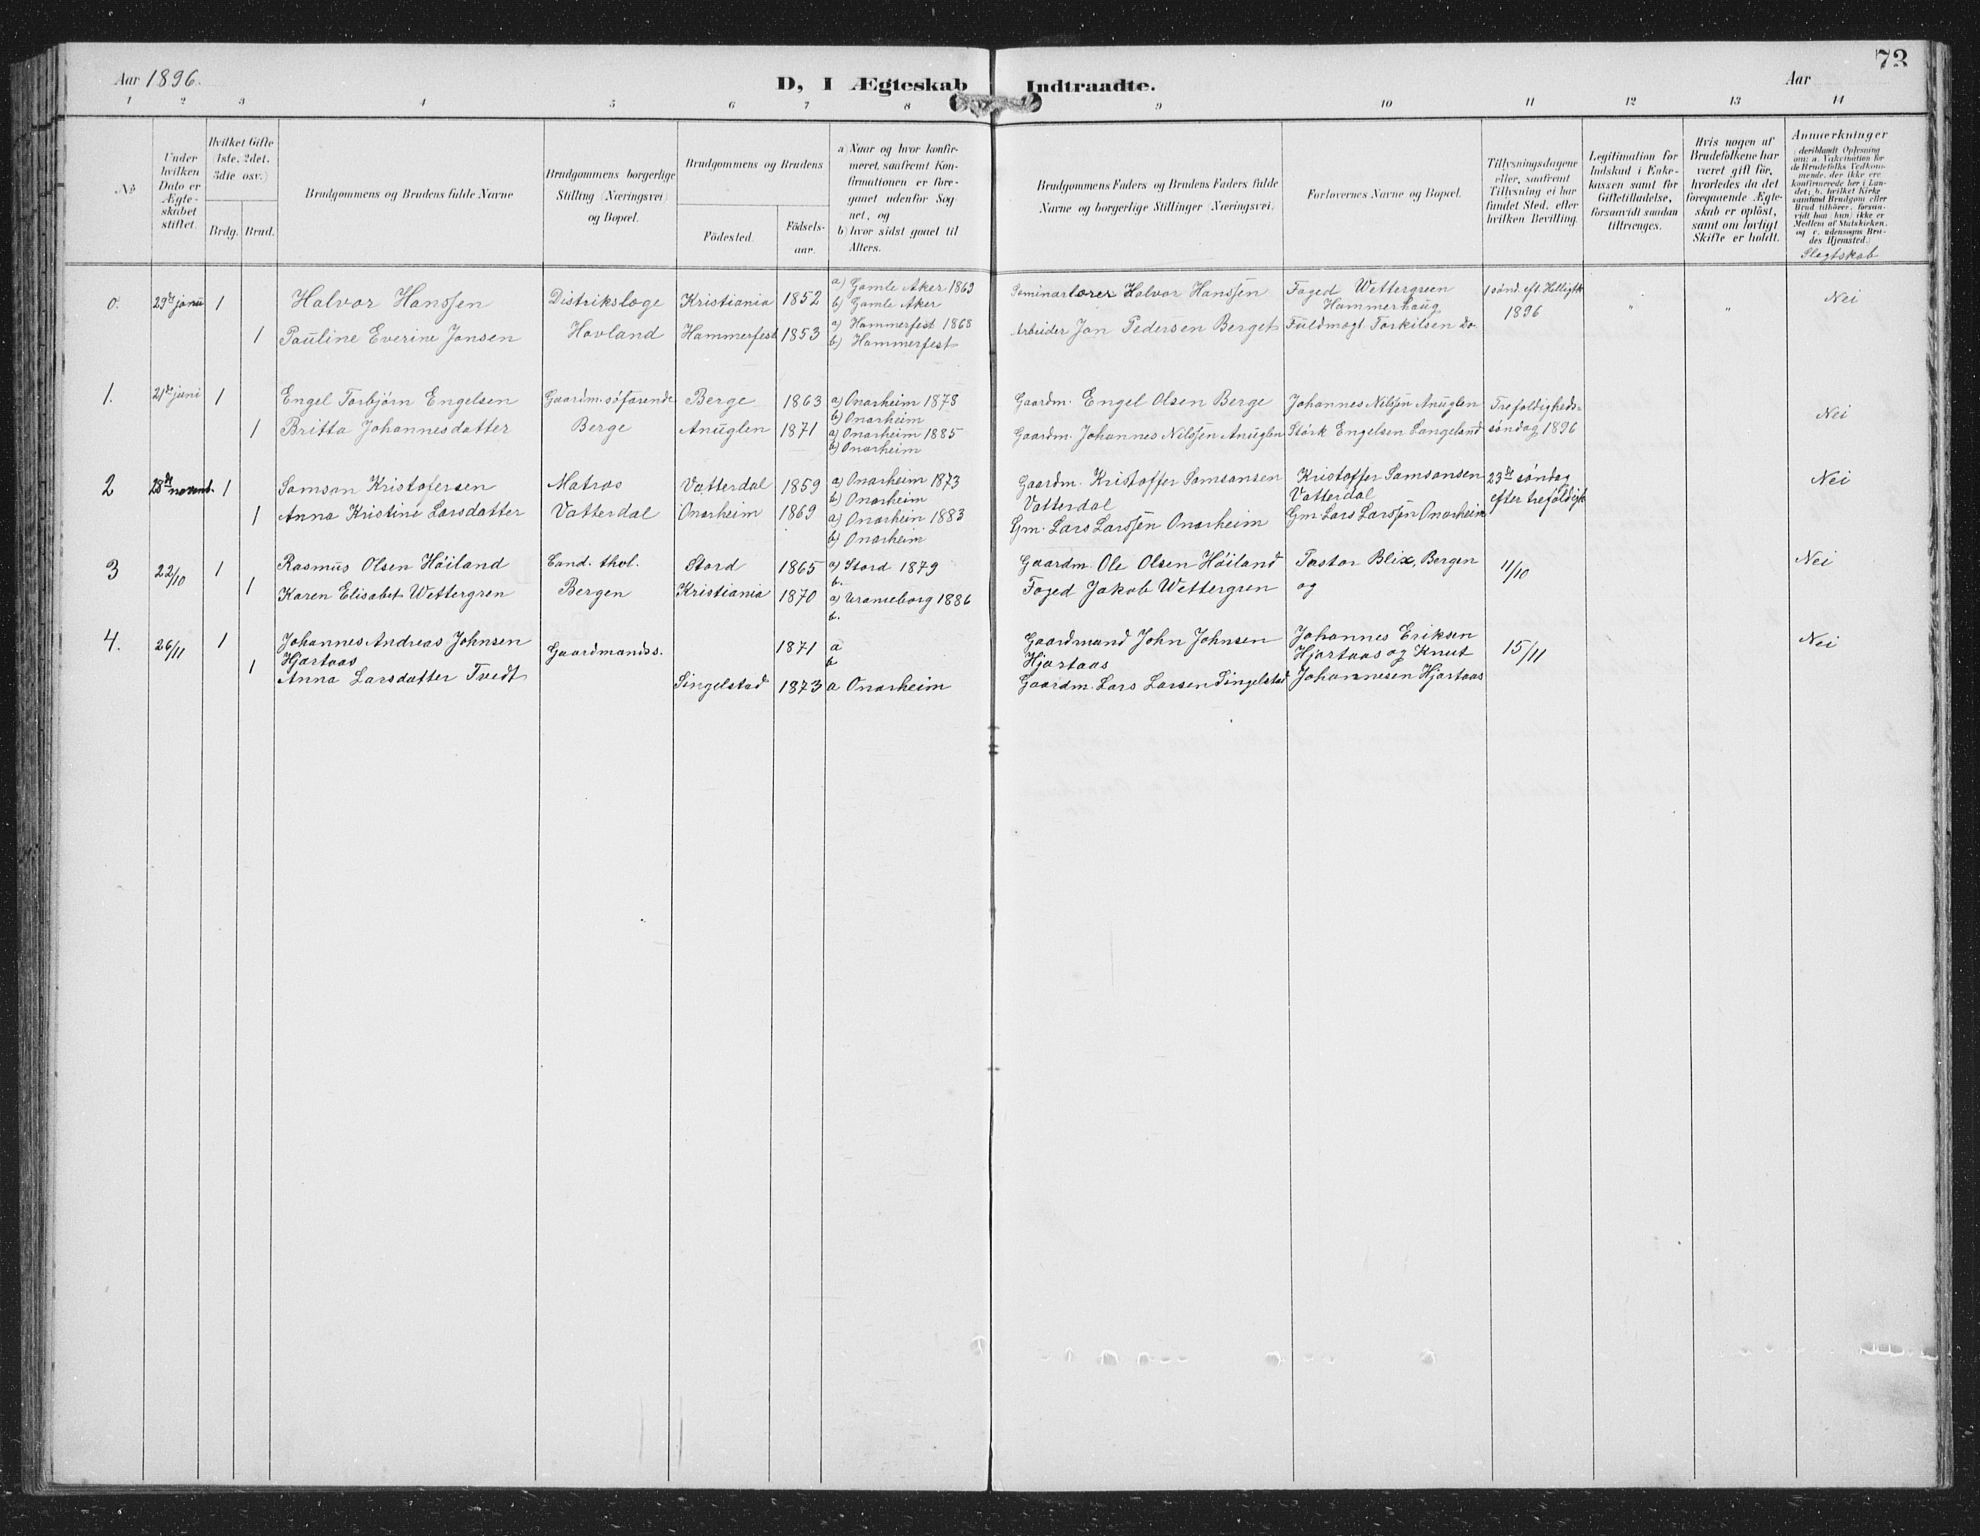 Aar 1896.
D, I Ægteskab Indtraadte.
Aar
73
1 2 3 4 5 6 7 8 9 10 11 12 13 14
No.
Under hvilken Dato er Ægteskabet stiftet.
Hvilket Gifte (1ste, 2det, 3die osv.)
Brdg.
Brud.
Brudgommens og Brudens fulde Navne
Brudgommens borgerlige Stilling (Næringsvei) og Bopæl.
Brudgommens og Brudens
Fødested.
Fødselsaar.
a) Naar og hvor konfirmeret, saafremt Konfirmationen er foregaaet udenfor Sognet, og
b) hvor sidst gaaet til Alters.
Brudgommens Faders og Brudens Faders fulde Navne og borgerlige Stillinger (Næringsvei).
Forlovernes Navne og Bopæl.
Tillysningsdagene eller, saafremt Tillysning ei har fundet Sted, efter hvilken Bevilling.
Legitimation for Indskud i Enkekassen samt for Giftetilladelse, forsaavidt saadan tiltrænges.
Hvis nogen af Brudefolkene har været gift før, hvorledes da det foregaaende Ægteskab er opløst, samt om lovligt Skifte er holdt.
Anmerkninger
(deriblandt Oplysning om: a. Vakcination for de Brudefolks Vedkommende, der ikke ere konfirmerede her i Landet; b. hvilket Kirkesamfund Brudgom eller Brud tilhører, forsaavidt han (hun) ikke er Medlem af Statskirken, og c. udensogns Brudes Hjemsted.)
Slegtskab
0. 29de janu 1 Halvor Hanssen Distrikslæge Kristiania 1852 a) Gamle Aker 1869 Seminarlærer Halvor Hanssen Foged Wettergreen 1 sønd. eft Helligtk Nei
b) Gamle Aker Hammerhaug 1896 " "
1 Pauline Everine Jonsen Hovland Hammerfest 1853 a) Hammerfest 1868 Arbeider Jon Pedersen Berget Fuldmægt Torkilsen do.
b) Hammerfest
1. 21de juni 1 Engel Torbjørn Engelsen Gaardm. søfarende Berge 1863 a) Onarheim 1878 Gaardm. Engel Olsen Berge Johannes Nilssen Anuglen Trefoldigheds- Nei
b) Onarheim
1 Britta Johannesdatter Berge Anuglen 1871 a) Onarheim 1885 Gaardm. Johannes Nilssen Anuglen Størk Engelsen Langeland søndag 1896
b) Onarheim
2 28de novemb. 1 Samson Kristofersen Matros Vatterdal 1859 a) Onarheim 1873 Gaardm. Kristoffer Samsonsen Kristoffer Samsonsen 23de søndag Nei
b) Onarheim Vatterdal Vatterdal efter trefoldigh
1 Anna Kristine Larsdatter Vatterdal Onarheim 1869 a) Onarheim 1883 Gm. Lars Larssen Onarheim Gm. Lars Larssen Onarheim
b) Onarheim
3 22/10 1 Rasmus Olsen Høiland Cand. thol. Stord 1865 a) Stord 1879 Gaardm. Ole Olsen Høiland Pastor Blix, Bergen 11/10 Nei
b.
1 Karen Elisabet Wettergren Bergen Kristiania 1870 a) Uranieborg 1886 Foged Jakob Wettergren og
b.
4. 26/11 1 Johannes Andreas Johnsen Gaardmands. 1871 a Gaardmand John Johnsen Johannes Eriksen 15/11 Nei
Hjartaas b Hjartaas Hjartaas og Knut
1 Anna Larsdatter Tvedt Singelstad 1873 a Onarheim Gaardm. Lars Larsen Singelstad Johannesen Hjartaas